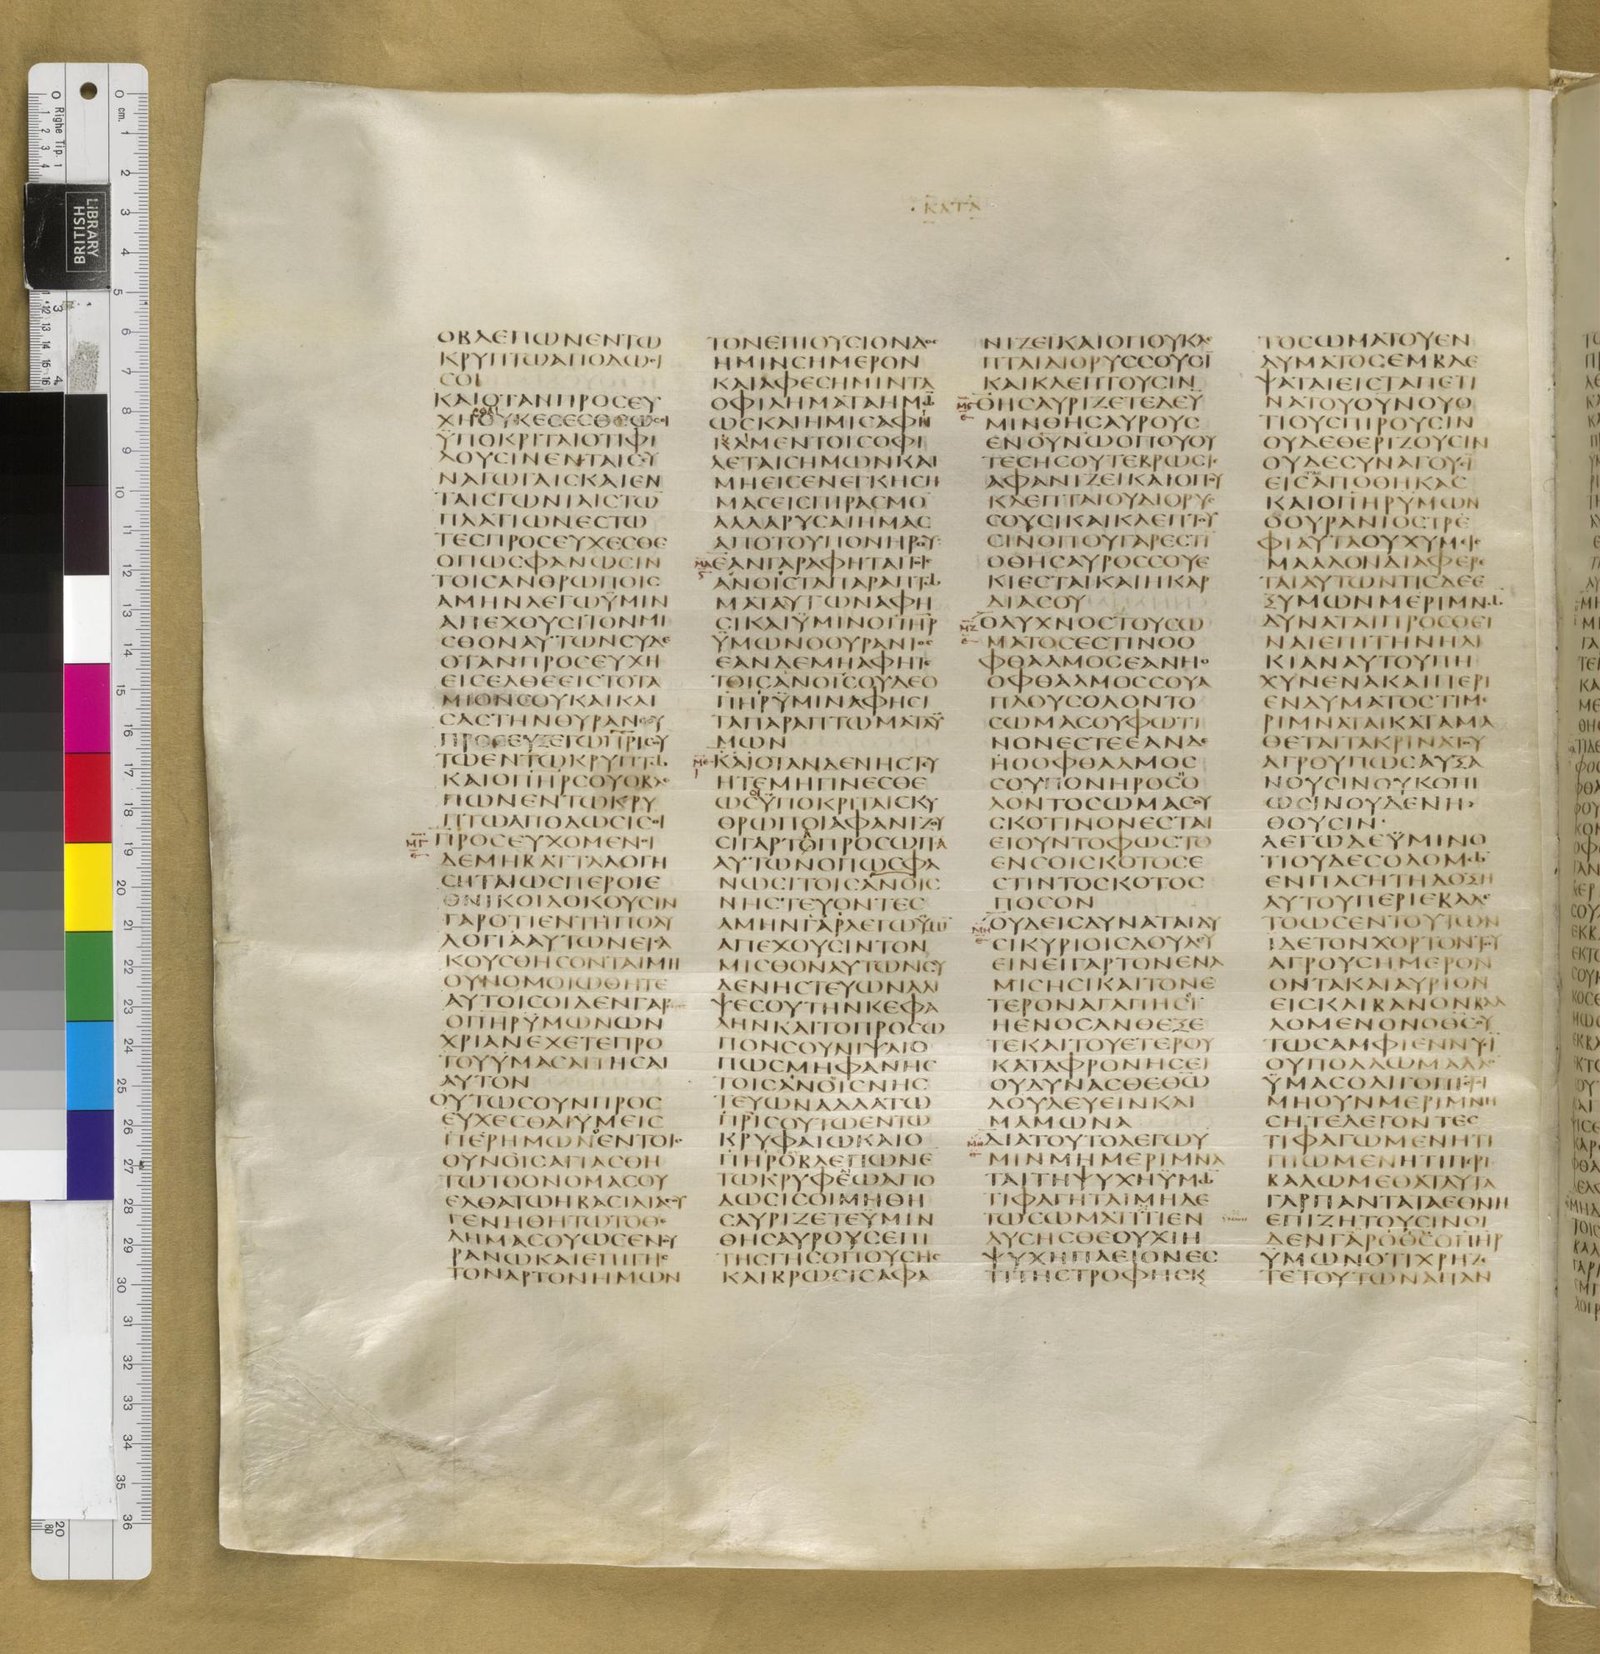 ΚΑΤΑ
ΟΒΛΕΠΩΝΕΝΤΩ
ΚΡΥΠΤΩΑΠΟΔΩϹΙ
ϹΟΙ
ΚΑΙΟΤΑΝΠΡΟϹΕΥ
ΧΗΟΥΚΕϹΕϹΘΕΩϹΟΙ
ΫΠΟΚΡΙΤΑΙΟΤΙΦΙ
ΛΟΥϹΙΝΕΝΤΑΙϹΥ
ΝΑΓΩΓΑΙϹΚΑΙΕΝ
ΤΑΙϹΓΩΝΙΑΙϹΤΩ
ΠΛΑΤΙΩΝΕϹΤΩ
ΤΕϹΠΡΟϹΕΥΧΕϹΘΕ
ΟΠΩϹΦΑΝΩϹΙΝ
ΤΟΙϹΑΝΘΡΩΠΟΙϹ
ΑΜΗΝΛΕΓΩΫΜΙΝ
ΑΠΕΧΟΥϹΙΤΟΝΜΙ
ϹΘΟΝΑΥΤΩΝϹΥΔΕ
ΟΤΑΝΠΡΟϹΕΥΧΗ
ΕΙϹΕΛΘΕΕΙϹΤΟΤΑ
ΜΙΟΝϹΟΥΚΑΙΚΛΙ
ϹΑϹΤΗΝΘΥΡΑΝϹΟΥ
ΠΡΟϹΕΥΞΕΤΩΠΡΙϹΟΥ
ΤΩΕΝΤΩΚΡΥΠΤΩ
ΚΑΙΟΠΗΡϹΟΥΟΒΛΕ
ΠΩΝΕΝΤΩΚΡΥ
ΠΤΩΑΠΟΔΩϹΙϹΟΙ
ΜΓ
ΠΡΟϹΕΥΧΟΜΕΝΟΙ
ΔΕΜΗΒΑΤΤΑΛΟΓΗ
ϹΗΤΑΙΩϹΠΕΡΟΙΕ
ΘΝΙΚΟΙΔΟΚΟΥϹΙΝ
ΓΑΡΟΤΙΕΝΤΗΠΟΛΥ
ΛΟΓΙΑΑΥΤΩΝΕΙϹΑ
ΚΟΥϹΘΗϹΟΝΤΑΙΜΗ
ΟΥΝΟΜΟΙΩΘΗΤΕ
ΑΥΤΟΙϹΟΙΔΕΝΓΑΡ
ΟΠΗΡΫΜΩΝΩΝ
ΧΡΙΑΝΕΧΕΤΕΠΡΟ
ΤΟΥΫΜΑϹΑΙΤΗϹΑΙ
ΑΥΤΟΝ
ΟΥΤΩϹΟΥΝΠΡΟϹ
ΕΥΧΕϹΘΑΙΫΜΕΙϹ
ΠΕΡΗΜΩΝΕΝΤΟΙϹ
ΟΥΝΟΙϹΑΓΙΑϹΘΗ
ΤΩΤΟΟΝΟΜΑϹΟΥ
ΕΛΘΑΤΩΗΒΑϹΙΛΙΑϹΟΥ
ΓΕΝΗΘΗΤΩΤΟΘΕ
ΛΗΜΑϹΟΥΩϹΕΝΟΥ
ΡΑΝΩΚΑΙΕΠΙΓΗϹ
ΤΟΝΑΡΤΟΝΗΜΩΝ
ΤΟΝΕΠΙΟΥϹΙΟΝΔΟϹ
ΗΜΙΝϹΗΜΕΡΟΝ
ΚΑΙΑΦΕϹΗΜΙΝΤΑ
ΟΦΙΛΗΜΑΤΑΗΜΩ
ΩϹΚΑΙΗΜΙϹΑΦΗ
ΚΑΜΕΝΤΟΙϹΟΦΙ
ΛΕΤΑΙϹΗΜΩΝΚΑΙ
ΜΗΕΙϹΕΝΕΓΚΗϹΗ
ΜΑϹΕΙϹΠΙΡΑϹΜΟ
ΑΛΛΑΡΥϹΑΙΗΜΑϹ
ΑΠΟΤΟΥΠΟΝΗΡΟΥ
ΜΔ
ΕΑΝΓΑΡΑΦΗΤΑΙΤΟΙϹ
ΑΝΟΙϹΤΑΠΑΡΑΠΤΩ
ΜΑΤΑΥΤΩΝΑΦΗ
ϹΙΚΑΙΫΜΙΝΟΠΗΡ
ΫΜΩΝΟΟΥΡΑΝΙΟϹ
ΕΑΝΔΕΜΗΑΦΗΤΕ
ΤΟΙϹΑΝΟΙϹΟΥΔΕΟ
ΠΗΡΫΜΙΝΑΦΗϹΙ
ΤΑΠΑΡΑΠΤΩΜΑΤΑΫ
ΜΩΝ
ΜΕ
ΚΑΙΟΤΑΝΔΕΝΗϹΤΕΥ
ΗΤΕΜΗΓΙΝΕϹΘΕ
ΩϹΫΠΟΚΡΙΤΑΙϹΚΥ
ΘΡΩΠΟΙΑΦΑΝΙΖΟΥ
ϹΙΓΑΡΤΟΠΡΟϹΩΠΑ
ΑΥΤΩΝΟΠΩϹΦΑ
ΝΩϹΙΤΟΙϹΑΝΟΙϹ
ΝΗϹΤΕΥΟΝΤΕϹ
ΑΜΗΝΓΑΡΛΕΓΩΫΜΙ
ΑΠΕΧΟΥϹΙΝΤΟΝ
ΜΙϹΘΟΝΑΥΤΩΝϹΥ
ΔΕΝΗϹΤΕΥΩΝΑΛΙ
ΨΕϹΟΥΤΗΝΚΕΦΑ
ΛΗΝΚΑΙΤΟΠΡΟϹΩ
ΠΟΝϹΟΥΝΙΨΑΙΟ
ΠΩϹΜΗΦΑΝΗϹ
ΤΟΙϹΑΝΟΙϹΝΗϹ
ΤΕΥΩΝΑΛΛΑΤΩ
ΠΡΙϹΟΥΤΩΕΝΤΩ
ΚΡΥΦΑΙΩΚΑΙΟ
ΠΗΡΟΒΛΕΠΩΝΕ
ΤΩΚΡΥΦΕΩΑΠΟ
ΔΩϹΙϹΟΙΜΗΘΗ
ϹΑΥΡΙΖΕΤΕΫΜΙΝ
ΘΗϹΑΥΡΟΥϹΕΠΙ
ΤΗϹΓΗϹΟΠΟΥϹΗϹ
ΚΑΙΒΡΩϹΙϹΑΦΑ
ΝΙΖΕΙΚΑΙΟΠΟΥΚΛΕ
ΠΤΑΙΔΙΟΡΥϹϹΟΥϹΙ
ΚΑΙΚΛΕΠΤΟΥϹΙΝ
ΜϚ
ΘΗϹΑΥΡΙΖΕΤΕΔΕΫ
ΜΙΝΘΗϹΑΥΡΟΥϹ
ΕΝΟΥΝΩΟΠΟΥΟΥ
ΤΕϹΗϹΟΥΤΕΒΡΩϹΙϹ
ΑΦΑΝΙΖΕΙΚΑΙΟΠΟΥ
ΚΛΕΠΤΑΙΟΥΔΙΟΡΥϹ
ϹΟΥϹΙΚΑΙΚΛΕΠΤΟΥ
ϹΙΝΟΠΟΥΓΑΡΕϹΤΙ
ΟΘΗϹΑΥΡΟϹϹΟΥΕ
ΚΙΕϹΤΑΙΚΑΙΗΚΑΡ
ΔΙΑϹΟΥ
ΜΖ
ΟΛΥΧΝΟϹΤΟΥϹΩ
ΜΑΤΟϹΕϹΤΙΝΟΟ
ΦΘΑΛΜΟϹΕΑΝΗΟ
ΟΦΘΑΛΜΟϹϹΟΥΑ
ΠΛΟΥϹΟΛΟΝΤΟ
ϹΩΜΑϹΟΥΦΩΤΙ
ΝΟΝΕϹΤΕΕΑΝΔΕ
ΗΟΟΦΘΑΛΜΟϹ
ϹΟΥΠΟΝΗΡΟϹΟ
ΛΟΝΤΟϹΩΜΑϹΟΥ
ϹΚΟΤΙΝΟΝΕϹΤΑΙ
ΕΙΟΥΝΤΟΦΩϹΤΟ
ΕΝϹΟΙϹΚΟΤΟϹΕ
ϹΤΙΝΤΟϹΚΟΤΟϹ
ΠΟϹΟΝ
ΜΗ
ΟΥΔΕΙϹΔΥΝΑΤΑΙΔΥ
ϹΙΚΥΡΙΟΙϹΔΟΥΛΕΥ
ΕΙΝΕΙΓΑΡΤΟΝΕΝΑ
ΜΙϹΗϹΙΚΑΙΤΟΝΕ
ΤΕΡΟΝΑΓΑΠΗϹΕΙ
ΗΕΝΟϹΑΝΘΕΞΕ
ΤΕΚΑΙΤΟΥΕΤΕΡΟΥ
ΚΑΤΑΦΡΟΝΗϹΕΙ
ΟΥΔΥΝΑϹΘΕΘΩ
ΔΟΥΛΕΥΕΙΝΚΑΙ
ΜΑΜΩΝΑ
ΜΘ
ΔΙΑΤΟΥΤΟΛΕΓΩΥ
ΜΙΝΜΗΜΕΡΙΜΝΑ
ΤΑΙΤΗΨΥΧΗΫΜΩ
ΤΙΦΑΓΗΤΑΙΜΗΔΕ
ΤΩϹΩΜΑΤΙΤΙΕΝ
ΔΥϹΗϹΘΕΟΥΧΙΗ
ΨΥΧΗΠΛΕΙΟΝΕϹ
ΤΙΤΗϹΤΡΟΦΗϹΚ
ΤΟϹΩΜΑΤΟΥΕΝ
ΔΥΜΑΤΟϹΕΜΒΛΕ
ΨΑΤΑΙΕΙϹΤΑΠΕΤΙ
ΝΑΤΟΥΟΥΝΟΥΟ
ΤΙΟΥϹΠΙΡΟΥϹΙΝ
ΟΥΔΕΘΕΡΙΖΟΥϹΙΝ
ΟΥΔΕϹΥΝΑΓΟΥϹΙ
ΕΙϹΑΠΟΘΗΚΑϹ
ΚΑΙΟΠΗΡΥΜΩΝ
ΟΟΥΡΑΝΙΟϹΤΡΕ
ΦΙΑΥΤΑΟΥΧΥΜΕΙϹ
ΜΑΛΛΟΝΔΙΑΦΕΡΕ
ΤΑΙΑΥΤΩΝΤΙϹΔΕΕ
ΞΥΜΩΝΜΕΡΙΜΝΩ
ΔΥΝΑΤΑΙΠΡΟϹΘΕΙ
ΝΑΙΕΠΙΤΗΝΗΛΙ
ΚΙΑΝΑΥΤΟΥΠΗ
ΧΥΝΕΝΑΚΑΙΠΕΡΙ
ΕΝΔΥΜΑΤΟϹΤΙΜΕ
ΡΙΜΝΑΤΑΙΚΑΤΑΜΑ
ΘΕΤΑΙΤΑΚΡΙΝΑΤΟΥ
ΑΓΡΟΥΠΩϹΑΥΞΑ
ΝΟΥϹΙΝΟΥΚΟΠΙ
ΩϹΙΝΟΥΔΕΝΗ
ΘΟΥϹΙΝ
ΛΕΓΩΔΕΫΜΙΝΟ
ΤΙΟΥΔΕϹΟΛΟΜΩ
ΕΝΠΑϹΗΤΗΔΟΞΗ
ΑΥΤΟΥΠΕΡΙΕΒΑΛΕ
ΤΟΩϹΕΝΤΟΥΤΩΝ
ΙΔΕΤΟΝΧΟΡΤΟΝΤΟΥ
ΑΓΡΟΥϹΗΜΕΡΟΝ
ΟΝΤΑΚΑΙΑΥΡΙΟΝ
ΕΙϹΚΛΙΒΑΝΟΝΒΑΛ
ΛΟΜΕΝΟΝΟΘϹΟΥ
ΤΩϹΑΜΦΙΕΝΝΥϹΙ
ΟΥΠΟΛΛΩΜΑΛΛΟ
ΫΜΑϹΟΛΙΓΟΠΙϹΤΟΙ
ΜΗΟΥΝΜΕΡΙΜΝΗ
ϹΗΤΕΛΕΓΟΝΤΕϹ
ΤΙΦΑΓΩΜΕΝΗΤΙ
ΠΙΩΜΕΝΗΤΙΠΕΡΙ
ΒΑΛΩΜΕΘΑΤΑΥΤΑ
ΓΑΡΠΑΝΤΑΤΑΕΘΝΗ
ΕΠΙΖΗΤΟΥϹΙΝΟΙ
ΔΕΝΓΑΡΟΘϹΟΠΗΡ
ΫΜΩΝΟΤΙΧΡΗΖΕ
ΤΕΤΟΥΤΩΝΑΠΑΝ